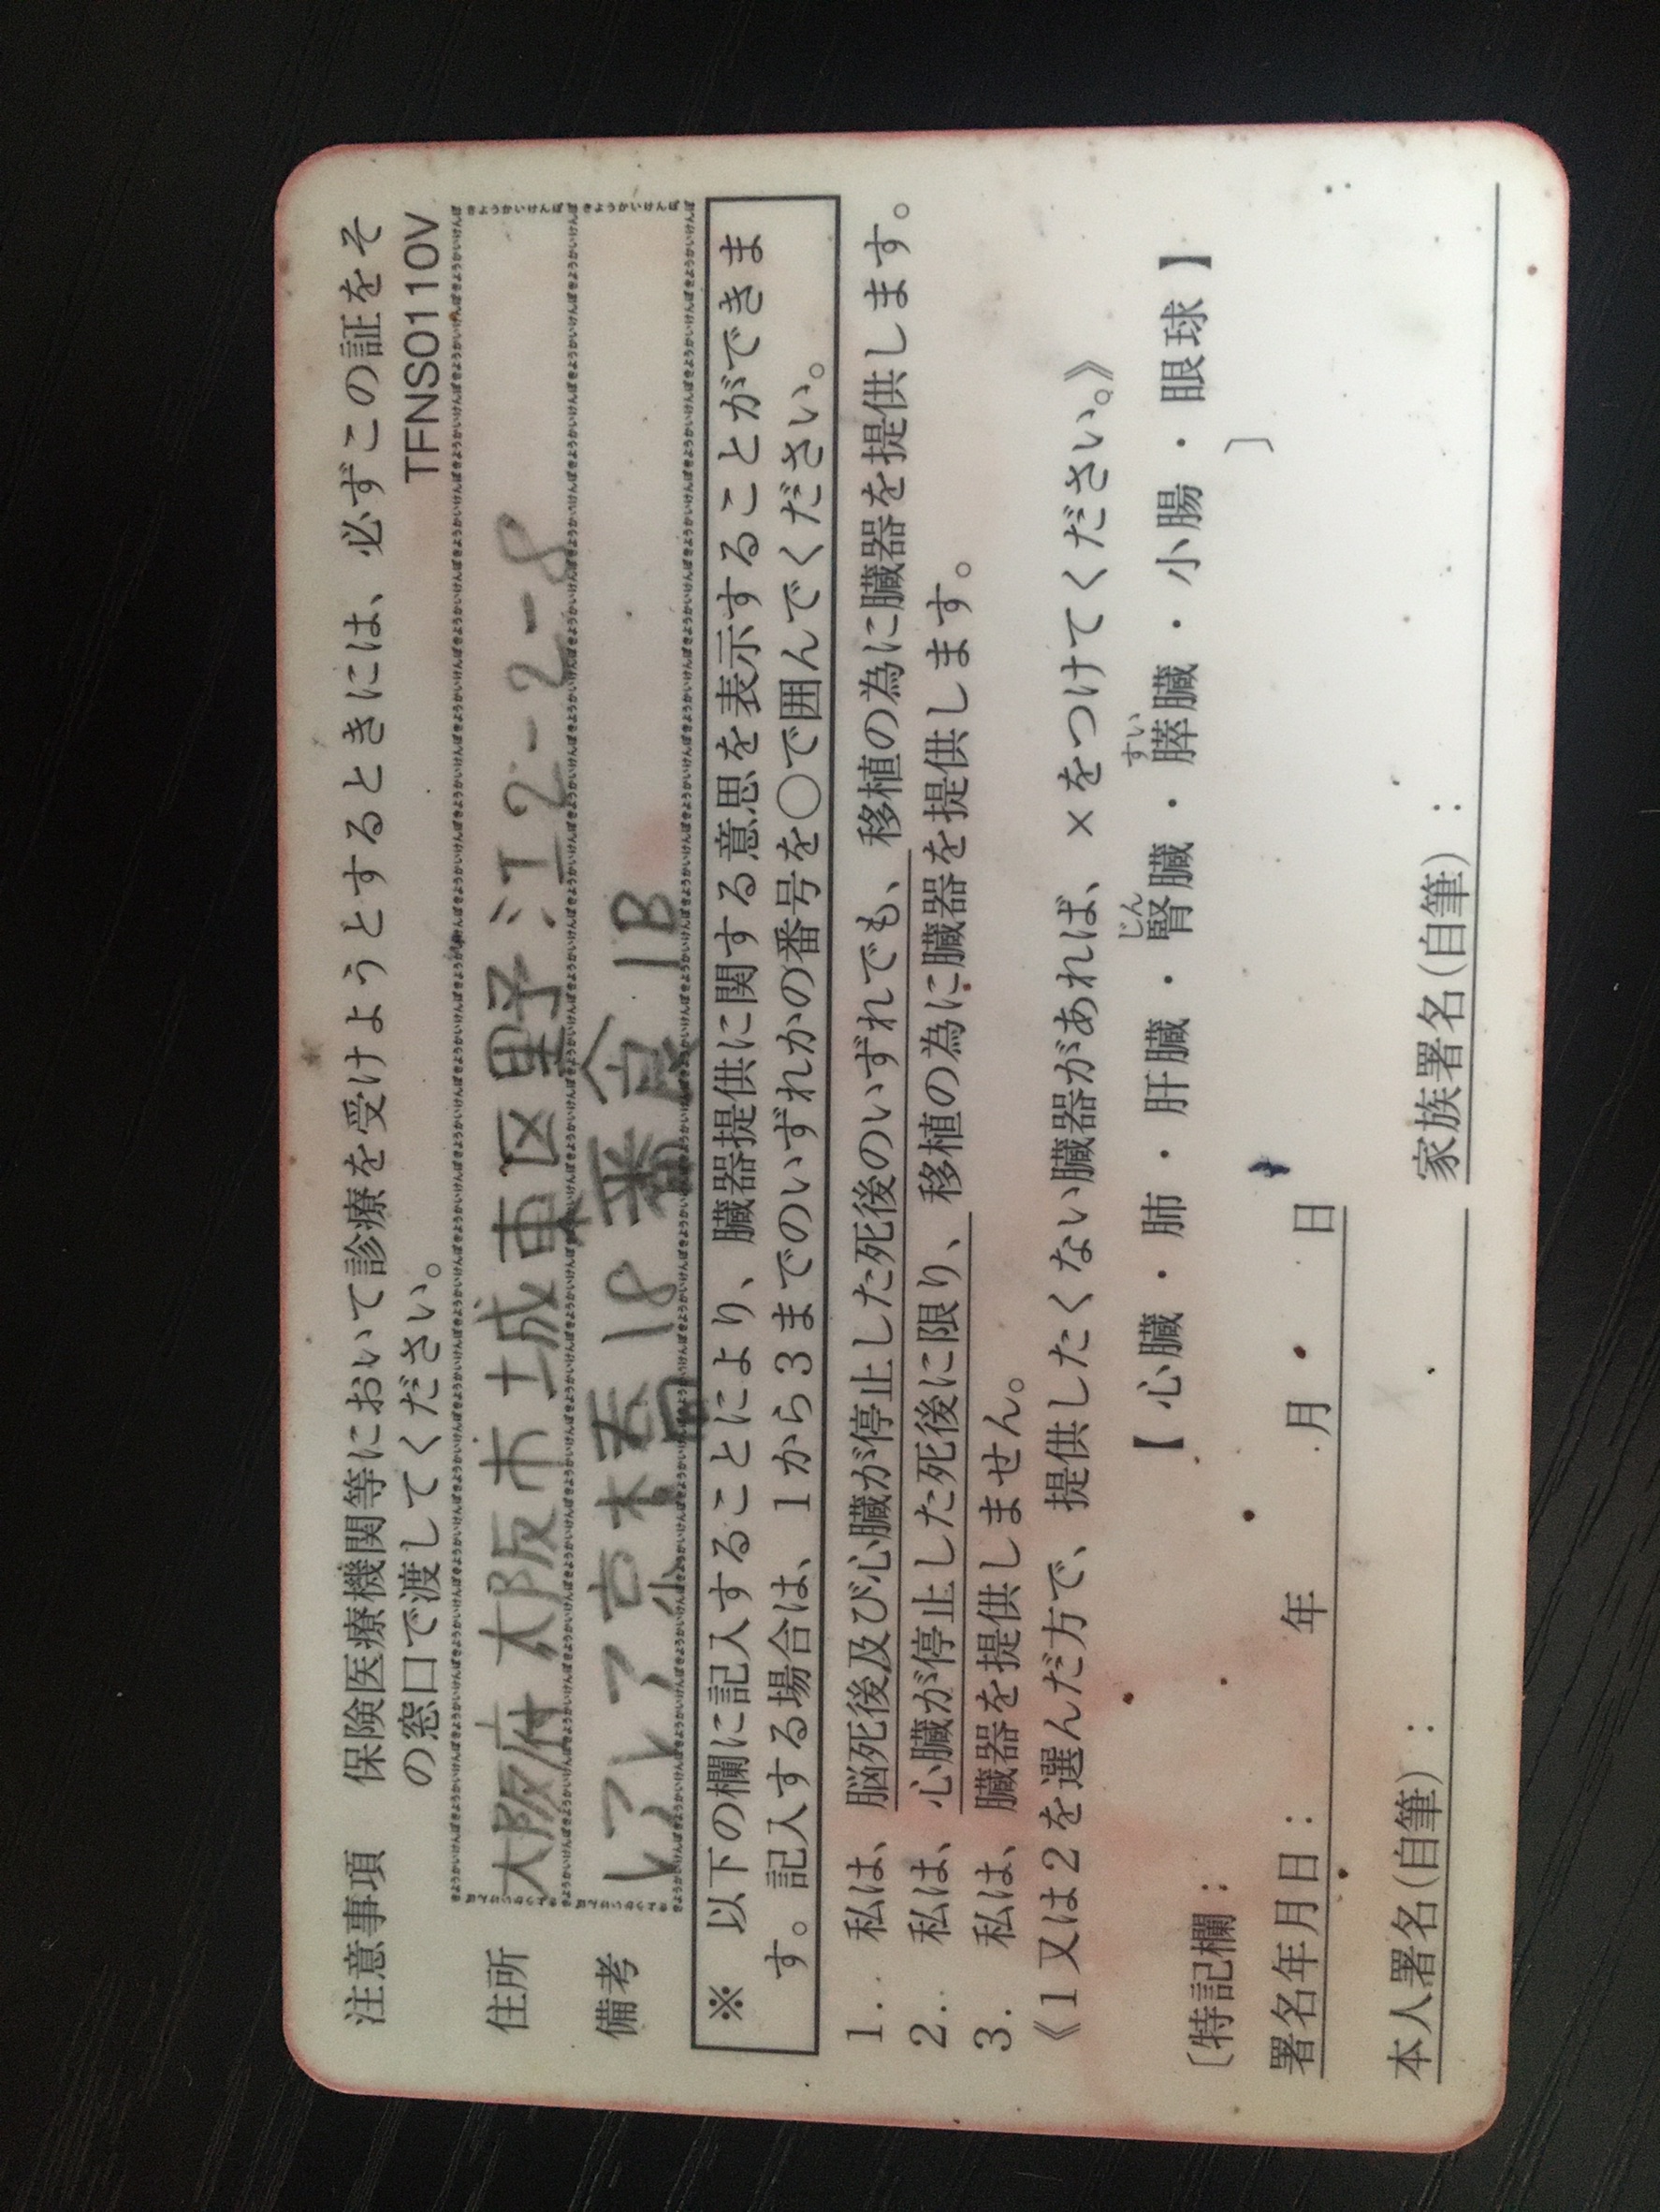 注意事項　保険医療機関等において診療を受けようとするときには、必ずこの証をそ
の窓口で渡してください。　TFNS0110V
住所　大阪府大阪市城東区野江2-2-8
備考　レアレア京橋18番館1B
※　以下の欄に記入することにより、臓器提供に関する意思を表示することができま
す。記入する場合は、1から3までのいずれかの番号を○で囲んでください。
1.　私は、脳死後及び心臓が停止した死後のいずれでも、移植の為に臓器を提供します。
2.　私は、心臓が停止した死後に限り、移植の為に臓器を提供します。
3.　私は、臓器を提供しません。
《1又は2を選んだ方で、提供したくない臓器があれば、×をつけてください。》
【 心臓 ・ 肺 ・ 肝臓 ・ 腎臓 ・ 膵臓 ・ 小腸 ・ 眼球 】
〔特記欄：　〕
署名年月日：　年　月　日
本人署名(自筆)：　家族署名(自筆)：